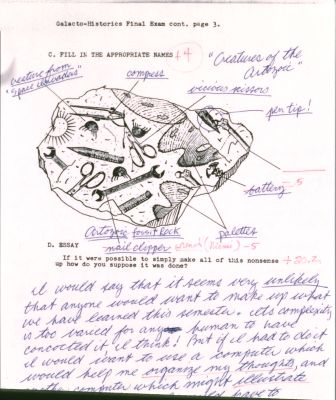 Galacto-Historics Final Exam cont. page 3.
C. FILL IN THE APPROPRIATE NAMES +4
"Creatures of the
Artozoic"
creature from
"Space Invaders"
compass
vicious scissors
pen tip!
battery -5
Artozoic fossil Rock
palettes
nail clipper wrench -5
D. ESSAY
If it were possible to simply make all of this nonsense
up how do you suppose it was done?
I would say that it seems very unlikely
that anyone would want to make up what
we have learned this semester. Its complexity
is too varied for any human to have
concocted it I think! But if I had to do it
I would want to use a computer which
would help me organize my thoughts, and
another computer which might illustrate
have to